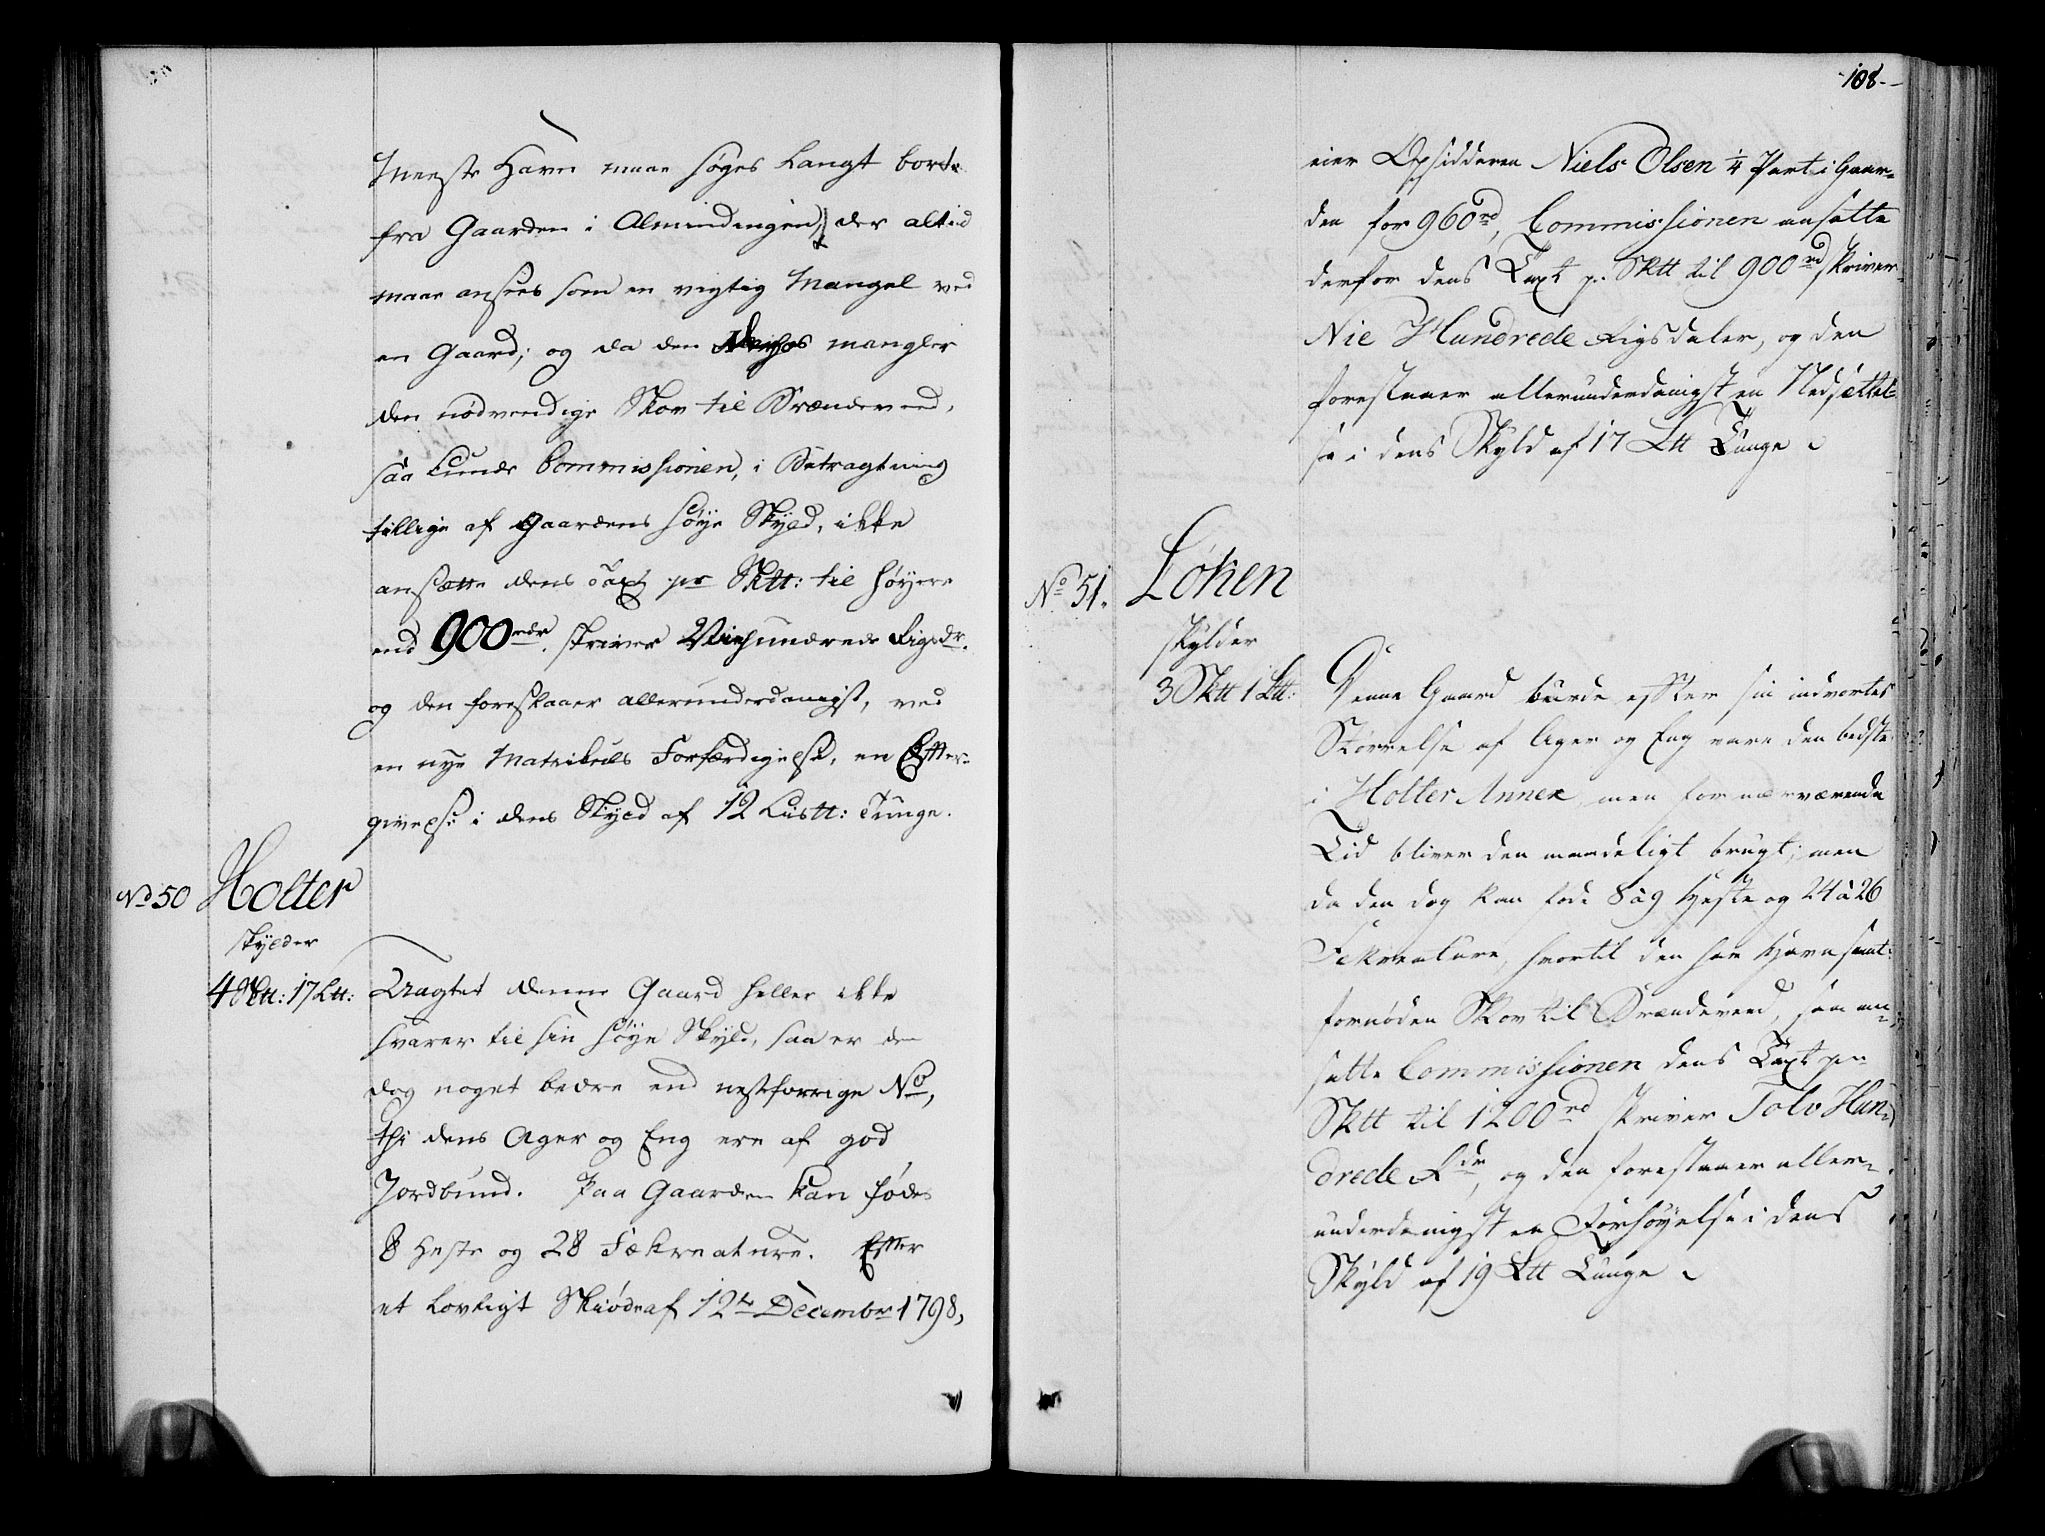 Meeste Havn maae søges langt borte
fra Gaarden i Almindingen, der altid
maae ansees som en vigtig Mangel ved
en Gaard; og da den derhos mangler
den nødvendige Skov til Brændeveed,
saa kunde Commissionen, i Betragtning
tillige af Gaardens høye Skyld, ikke
ansætte dens Taxt pr Sktt: til høyere
end 900 rdr. skriver Niehundrede Rigsdr.
og den foreslaaer allerunderdanigst, ved
en nye Matrikuls Forfærdigelse, en Efter-
givelse i dens Skyld af 12 Listt: Tunge.
No 50 Holter
skylder
4 Sktt: 17 Ltt:
Uagtet denne Gaard heller ikke
svarer til sin høye Skyld, saa er den
dog noget bedre end nestforrige No,
thi dens Ager og Eng ere af god
Jordbund. Paa Gaarden kan fødes
8 Heste og 28 Fækreature. Efter
et lovligt Skiøde af 12te Decembr 1798,
108.
eier Opsidderen Niels Olsen 1/4 Part i Gaar-
den for 960 rd, Commissionen ansatte
derfor dens Taxt pr. Sktt til 900 rd skriver
Nie Hundrede Rigsdaler, og den
foreslaaer allerunderdanigst en Nedsættel-
se i dens Skyld af 17 Ltt Tunge
No 51. Løken
skylder
3 Sktt 1 Ltt:
Denne Gaard burde efter sin indvortes
Størrelse af Ager og Eng være den bedste
i Holter Annex, men for nærværende
Tid bliver den maadeligt brugt; men
da den dog kan føde 8 à 9 Heste og 24 à 26
Fækreature, hvortil den har Havn samt
fornøden Skov til Brændeveed, saa an-
satte Commissionen dens Taxt pr
Sktt til 1200 rd skriver Tolv Hun-
drede Rdr, og den foreslaaer aller-
underdanigst en Forhøyelse i dens
Skyld af 19 Ltt Tunge